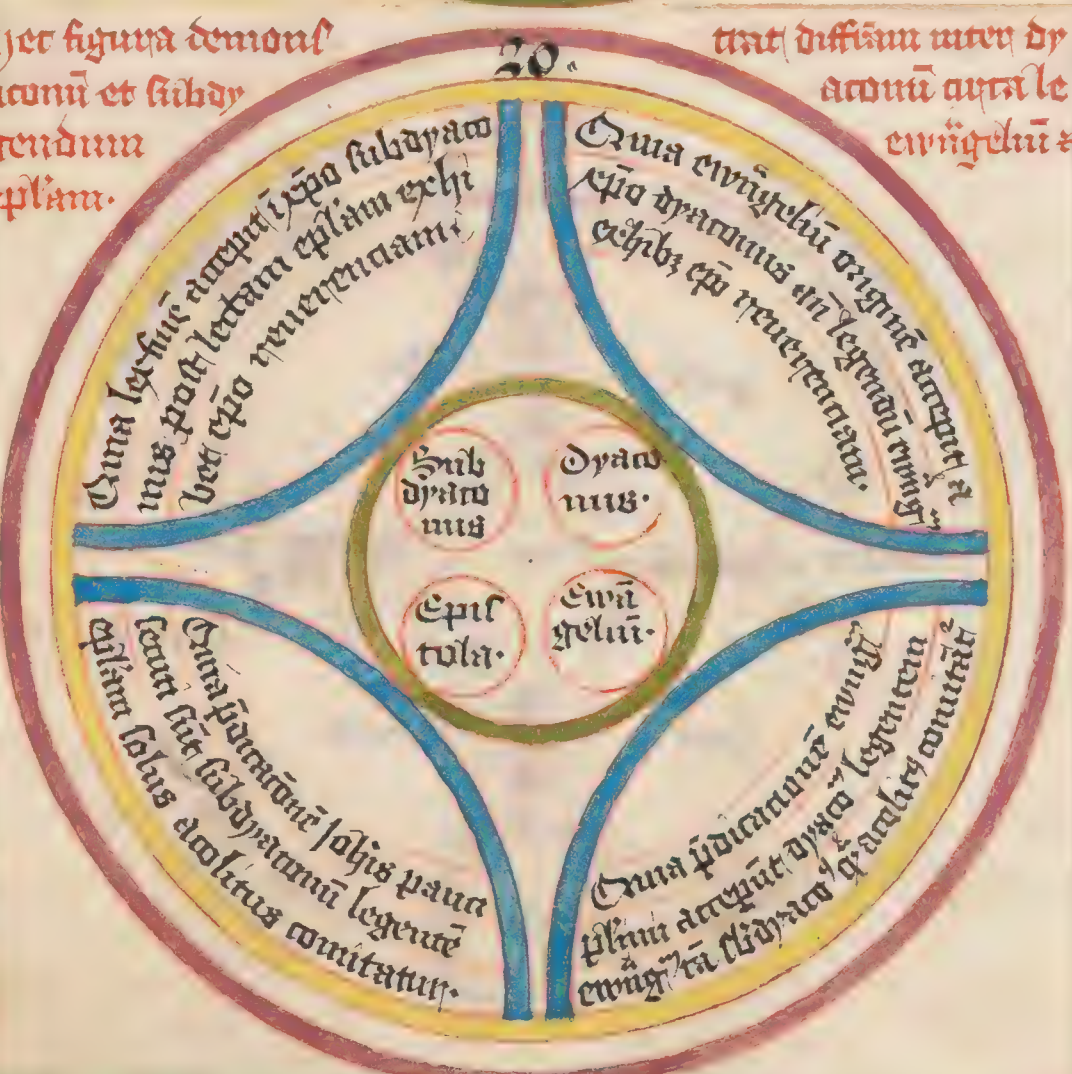 et figura demonſ
trat diffīam inter dy
aconū et ſubdy
aconū circa le
gendum
ewūgeliū ⁊
epl'am.
20.
Quia lex finē accepit ī xp̄o ſubdyaco
nus post lectam epl'am exhi
bet ep̄o reuerenciam
Quia ewūgeliū originē accepit a
xp̄o dyaconus an̄ legendū ewūg
exhibꝫ ep̄o reuerenciam.
Sub
dyaco
nus
Dyaco
nus.
Epiſ
tola.
Ewā
geliū.
Quia p̄dicacōnē Johis pauci
ſecuti ſūt ſubdyaconū legentē
epl'am ſolus acolitus comitatur.
Quia p̄dicacionē ewūg
pl'imi accepūt dyaco legentem
ewūg tā ſbdyaco qͣ acolitꝰ comitāt